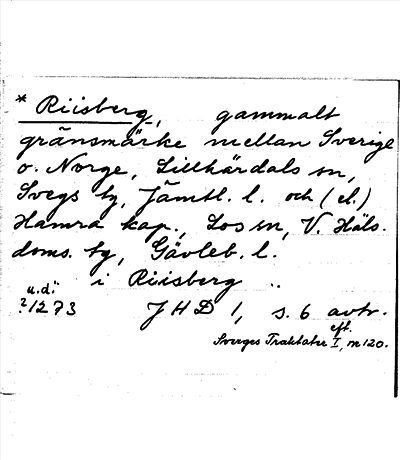 * Riisberg, gammalt
gränsmärke mellan Sverige
o. Norge, Lillhärdals sn,
Svegs tg, Jämtl. l. och (el.)
Hamra kap., Los sn, V. Häls.
doms. tg, Gävleb. l.
i Riisberg ..
u.d.
?1273 JHD 1, s. 6 avtr.
eft.
Sveriges Traktater I, nr 120.